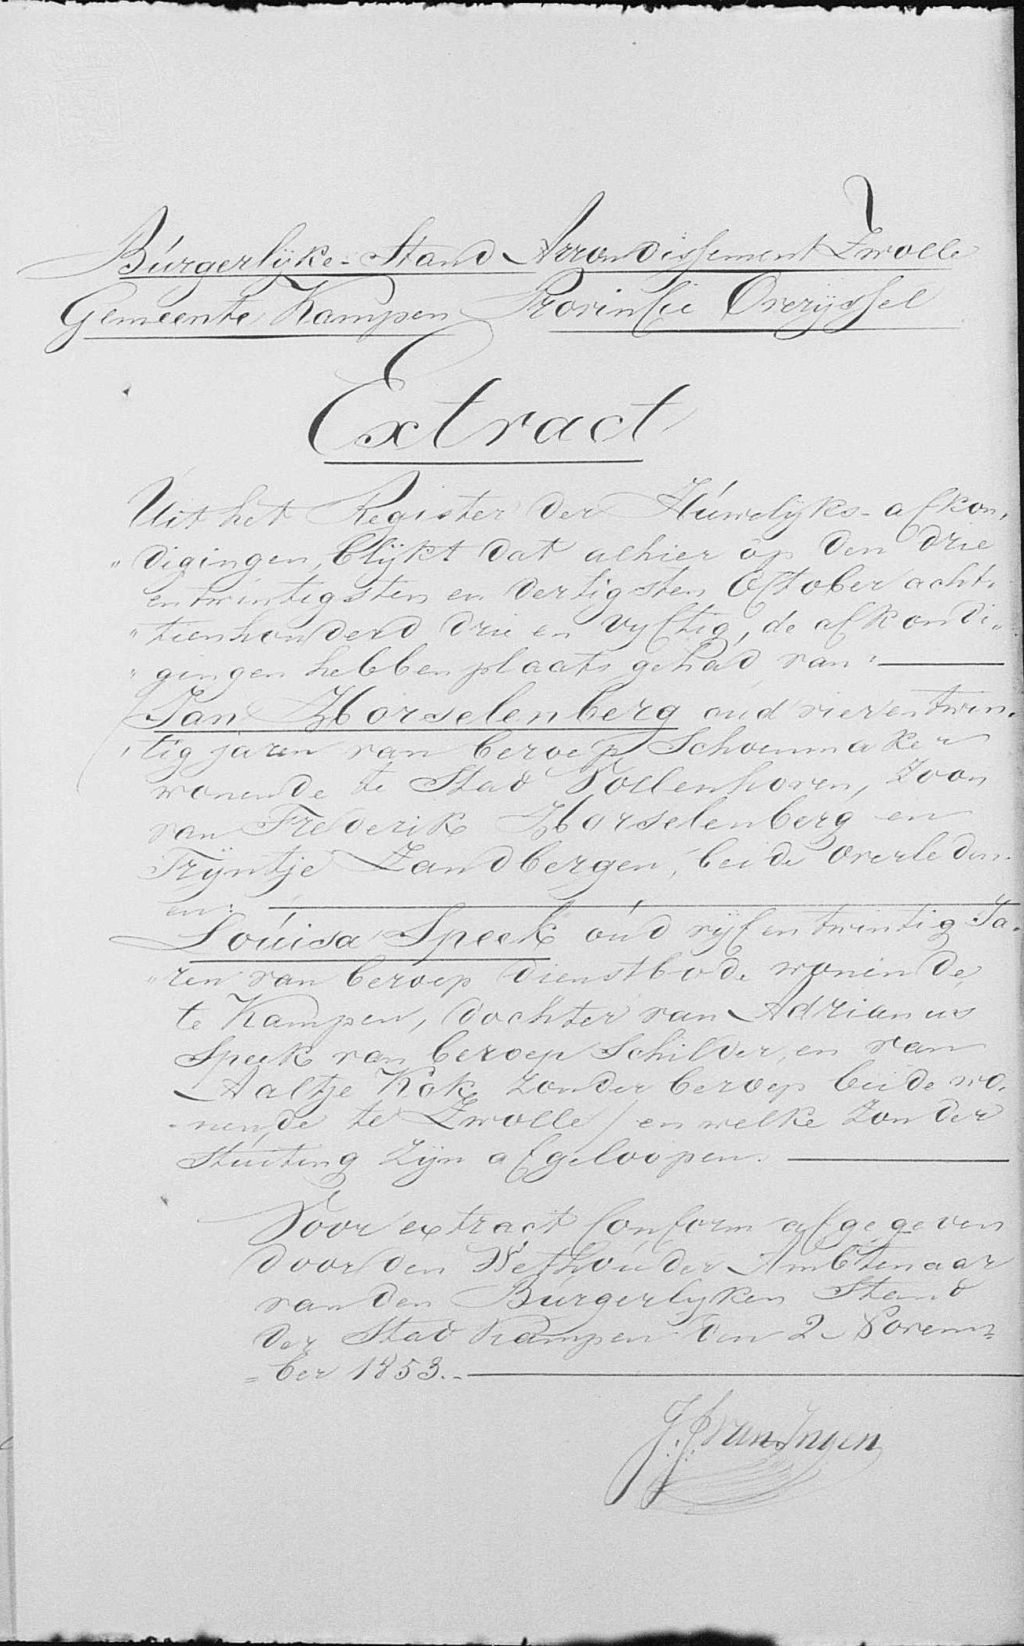 Búrgerlijke-Stand Arrondissement Zwolle
Gemeente Kampen Provinsie Overijssel
Extract
Uit het Register der Húwelijks-afkon„
„digingen, blijkt dat alhier op den drie
en twintigsten en dertigsten October acht„
„tienhonderd drie en vijftig, de afkondi„
„gingen hebben plaats gehad van:
Jan Horselenberg oud vier en twin„
„tig jaren van beroep Schoenmaker
wonende te Stad Vollenhoven, Zoon
van Frederik Horselenberg en
Trijntje Zandbergen, beide overleden.
en:
Loúisa Speek oúd vijf en twintig Ja„
„ren van beroep dienstbode wonende
te Kampen, dochter van Adrianus
Speek van beroep Schilder, en van
Aaltje Kok zonder beroep beide wo„
„nende te Zwolle, en welke zonder
stuiting zijn afgeloopen.
Voor extract Conform afgegeven
door den Wethoúder Ambtenaar
van den Búrgerlijken Stand
der Stad Kampen den 2 Novem„
„ber 1853.
van Ingen